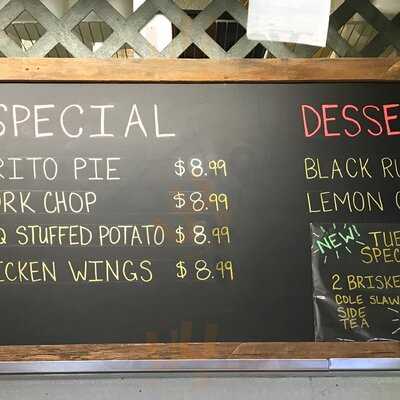 SPECIAL
RITO PIE $8.99
ORK CHOP $8.99
Q STUFFED POTATO $8.99
ICKEN WINGS $8.99
DESSE
BLACK RU
LEMON C
NEW!
TUE
SPEC
2 BRISKE
COLE SLAW
SIDE
TEA